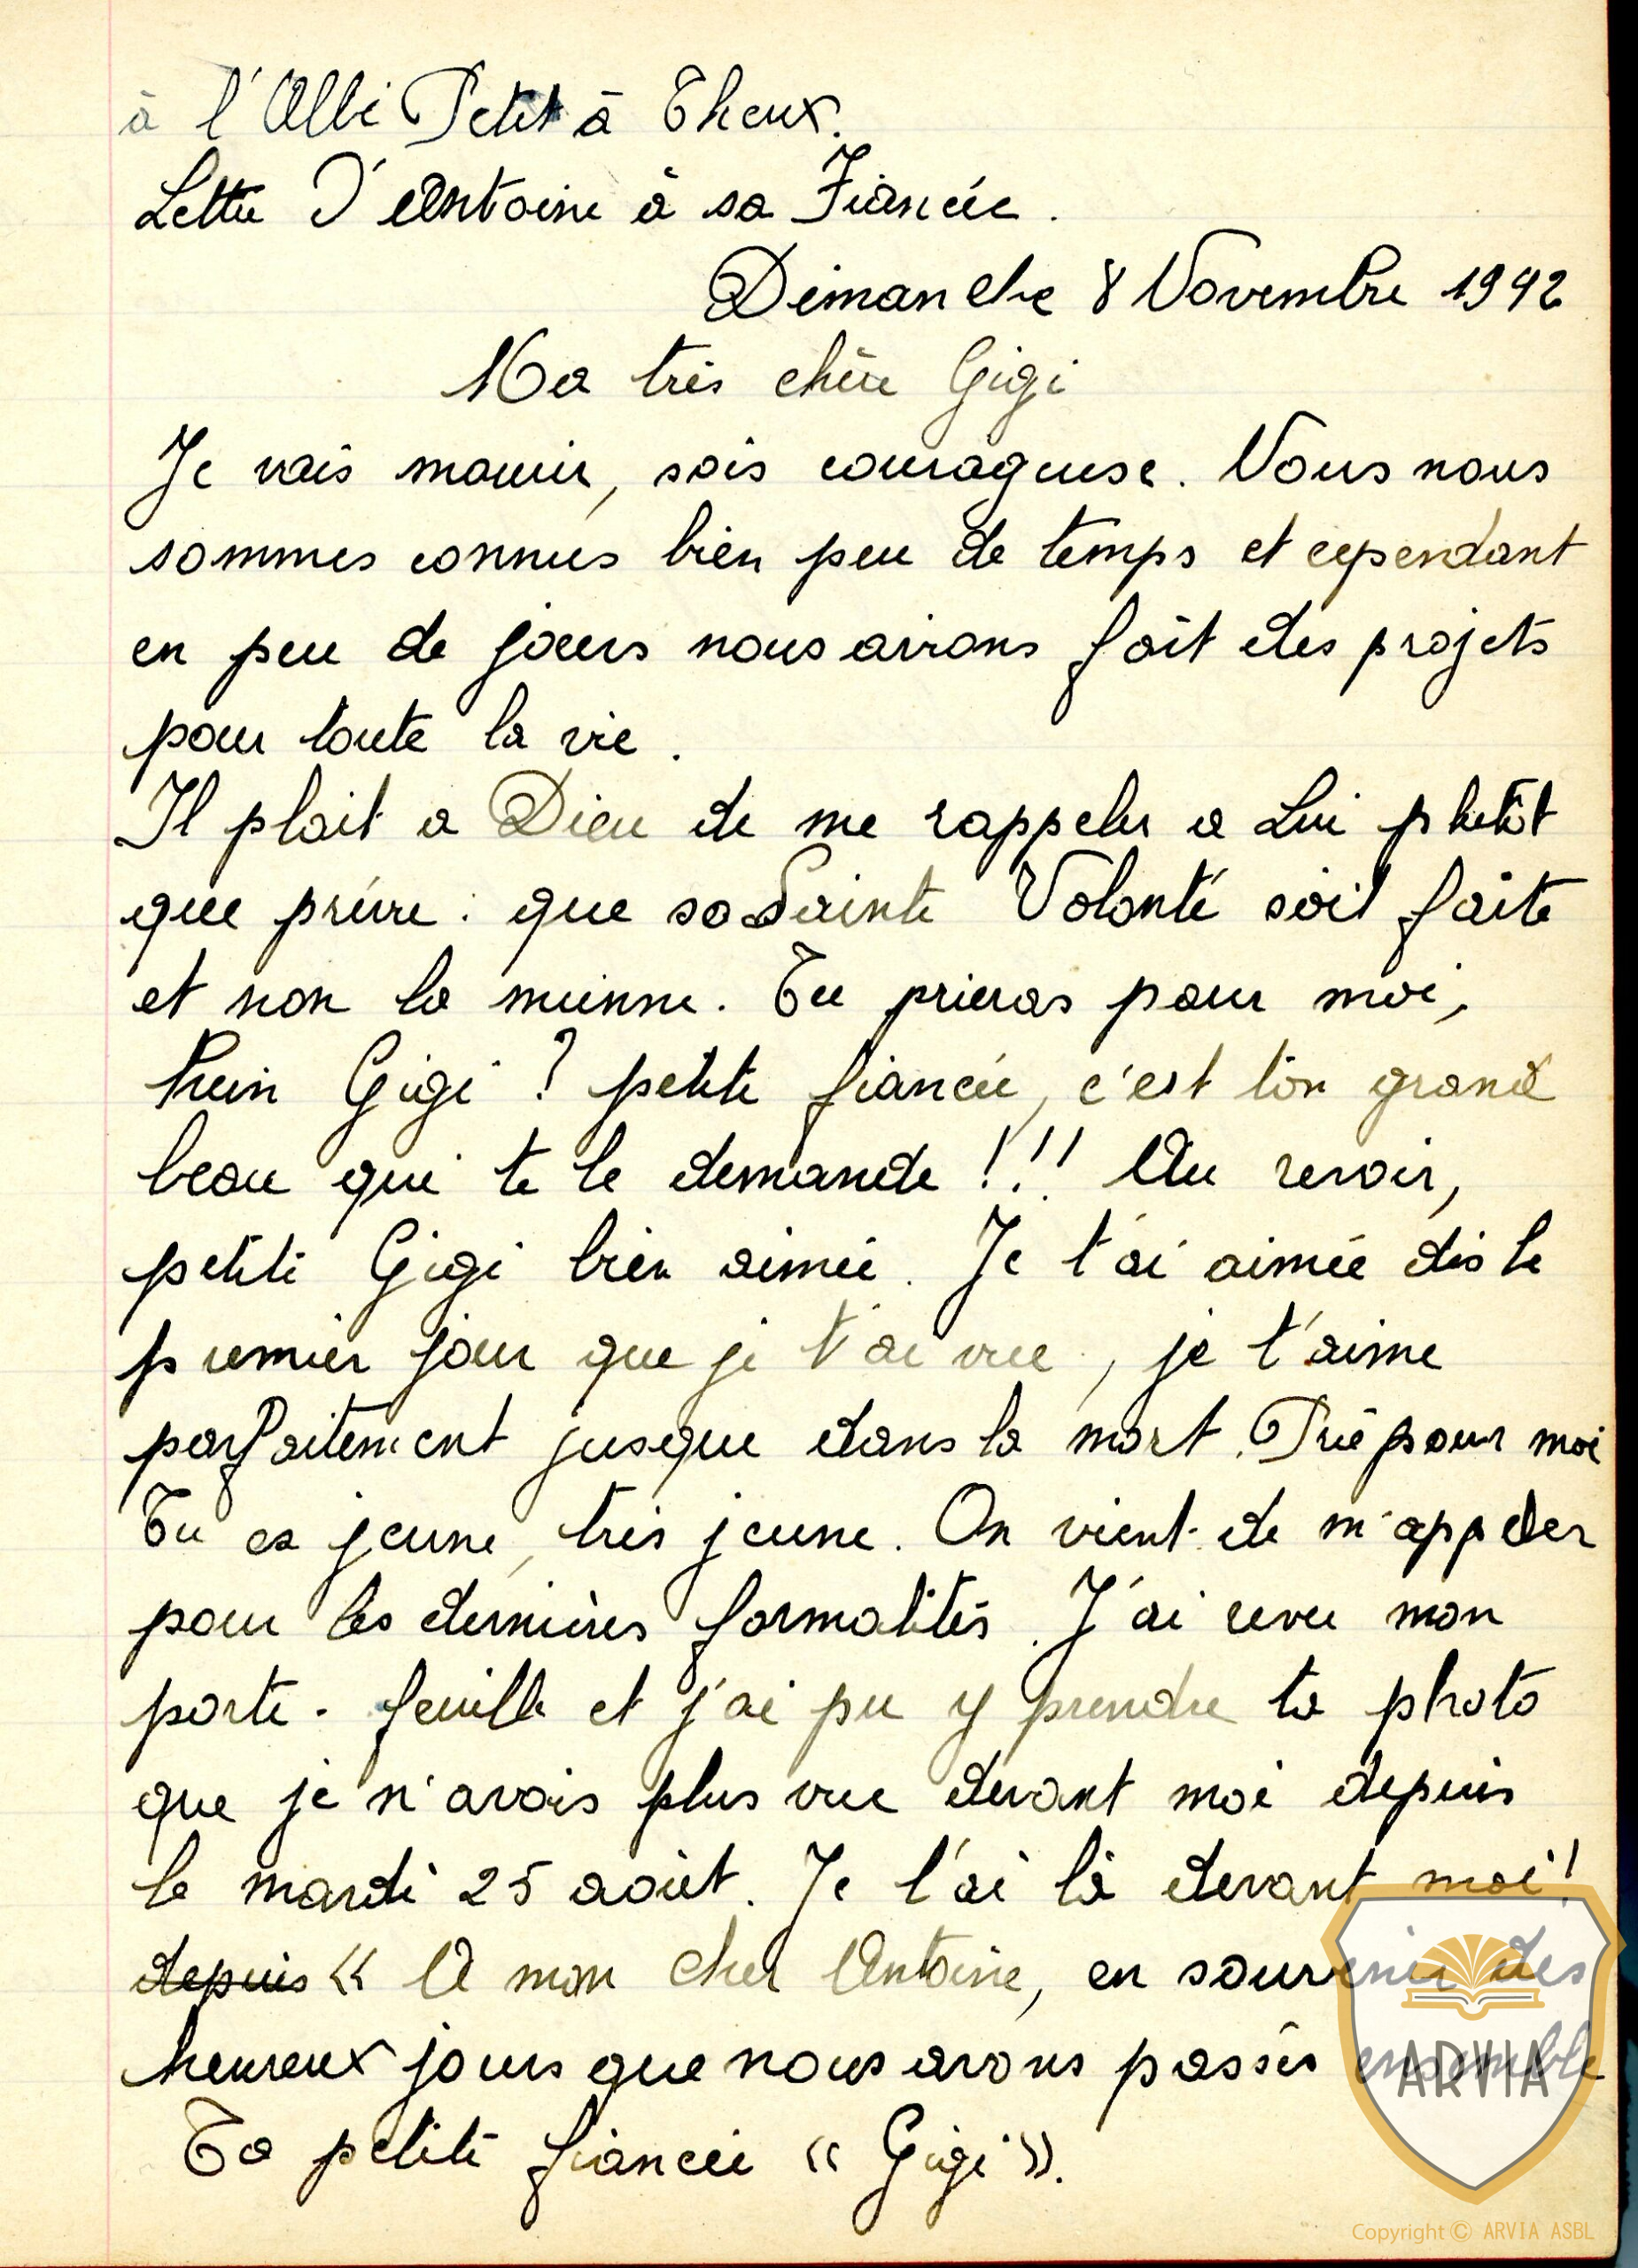 à l'Abbé Petit à Theux.
Lettre d'Antoine à sa Fiancée.
Dimanche 8 Novembre 1942
Ma très chère Gigi
Je vais mourir, sois courageuse. Nous nous
sommes connus bien peu de temps et cependant
en peu de jours nous avions fait des projets
pour toute la vie.
Il plait a Dieu de me rappeler a Lui plutôt
que prévu : que sa Sainte Volonté soit faite
et non la mienne. Tu prieras pour moi,
hein Gigi ? petite fiancée, c'est ton grand
beau qui te le demande !!! Au revoir,
petite Gigi bien aimée. Je t'ai aimée dès le
premier jour que je t'ai vue, je t'aime
parfaitement jusque dans la mort. Prie pour moi
Tu es jeune, très jeune. On vient de m'appeler
pour les dernières formalités. J'ai revu mon
porte-feuille et j'ai pu y prendre ta photo
que je n'avais plus vue devant moi depuis
le mardi 25 août. Je l'ai là devant moi!
depuis « A mon cher Antoine, en souvenir des
heureux jours que nous avons passés ensemble
Ta petite fiancée « Gigi ».
ARVIA
Copyright © ARVIA ASBL